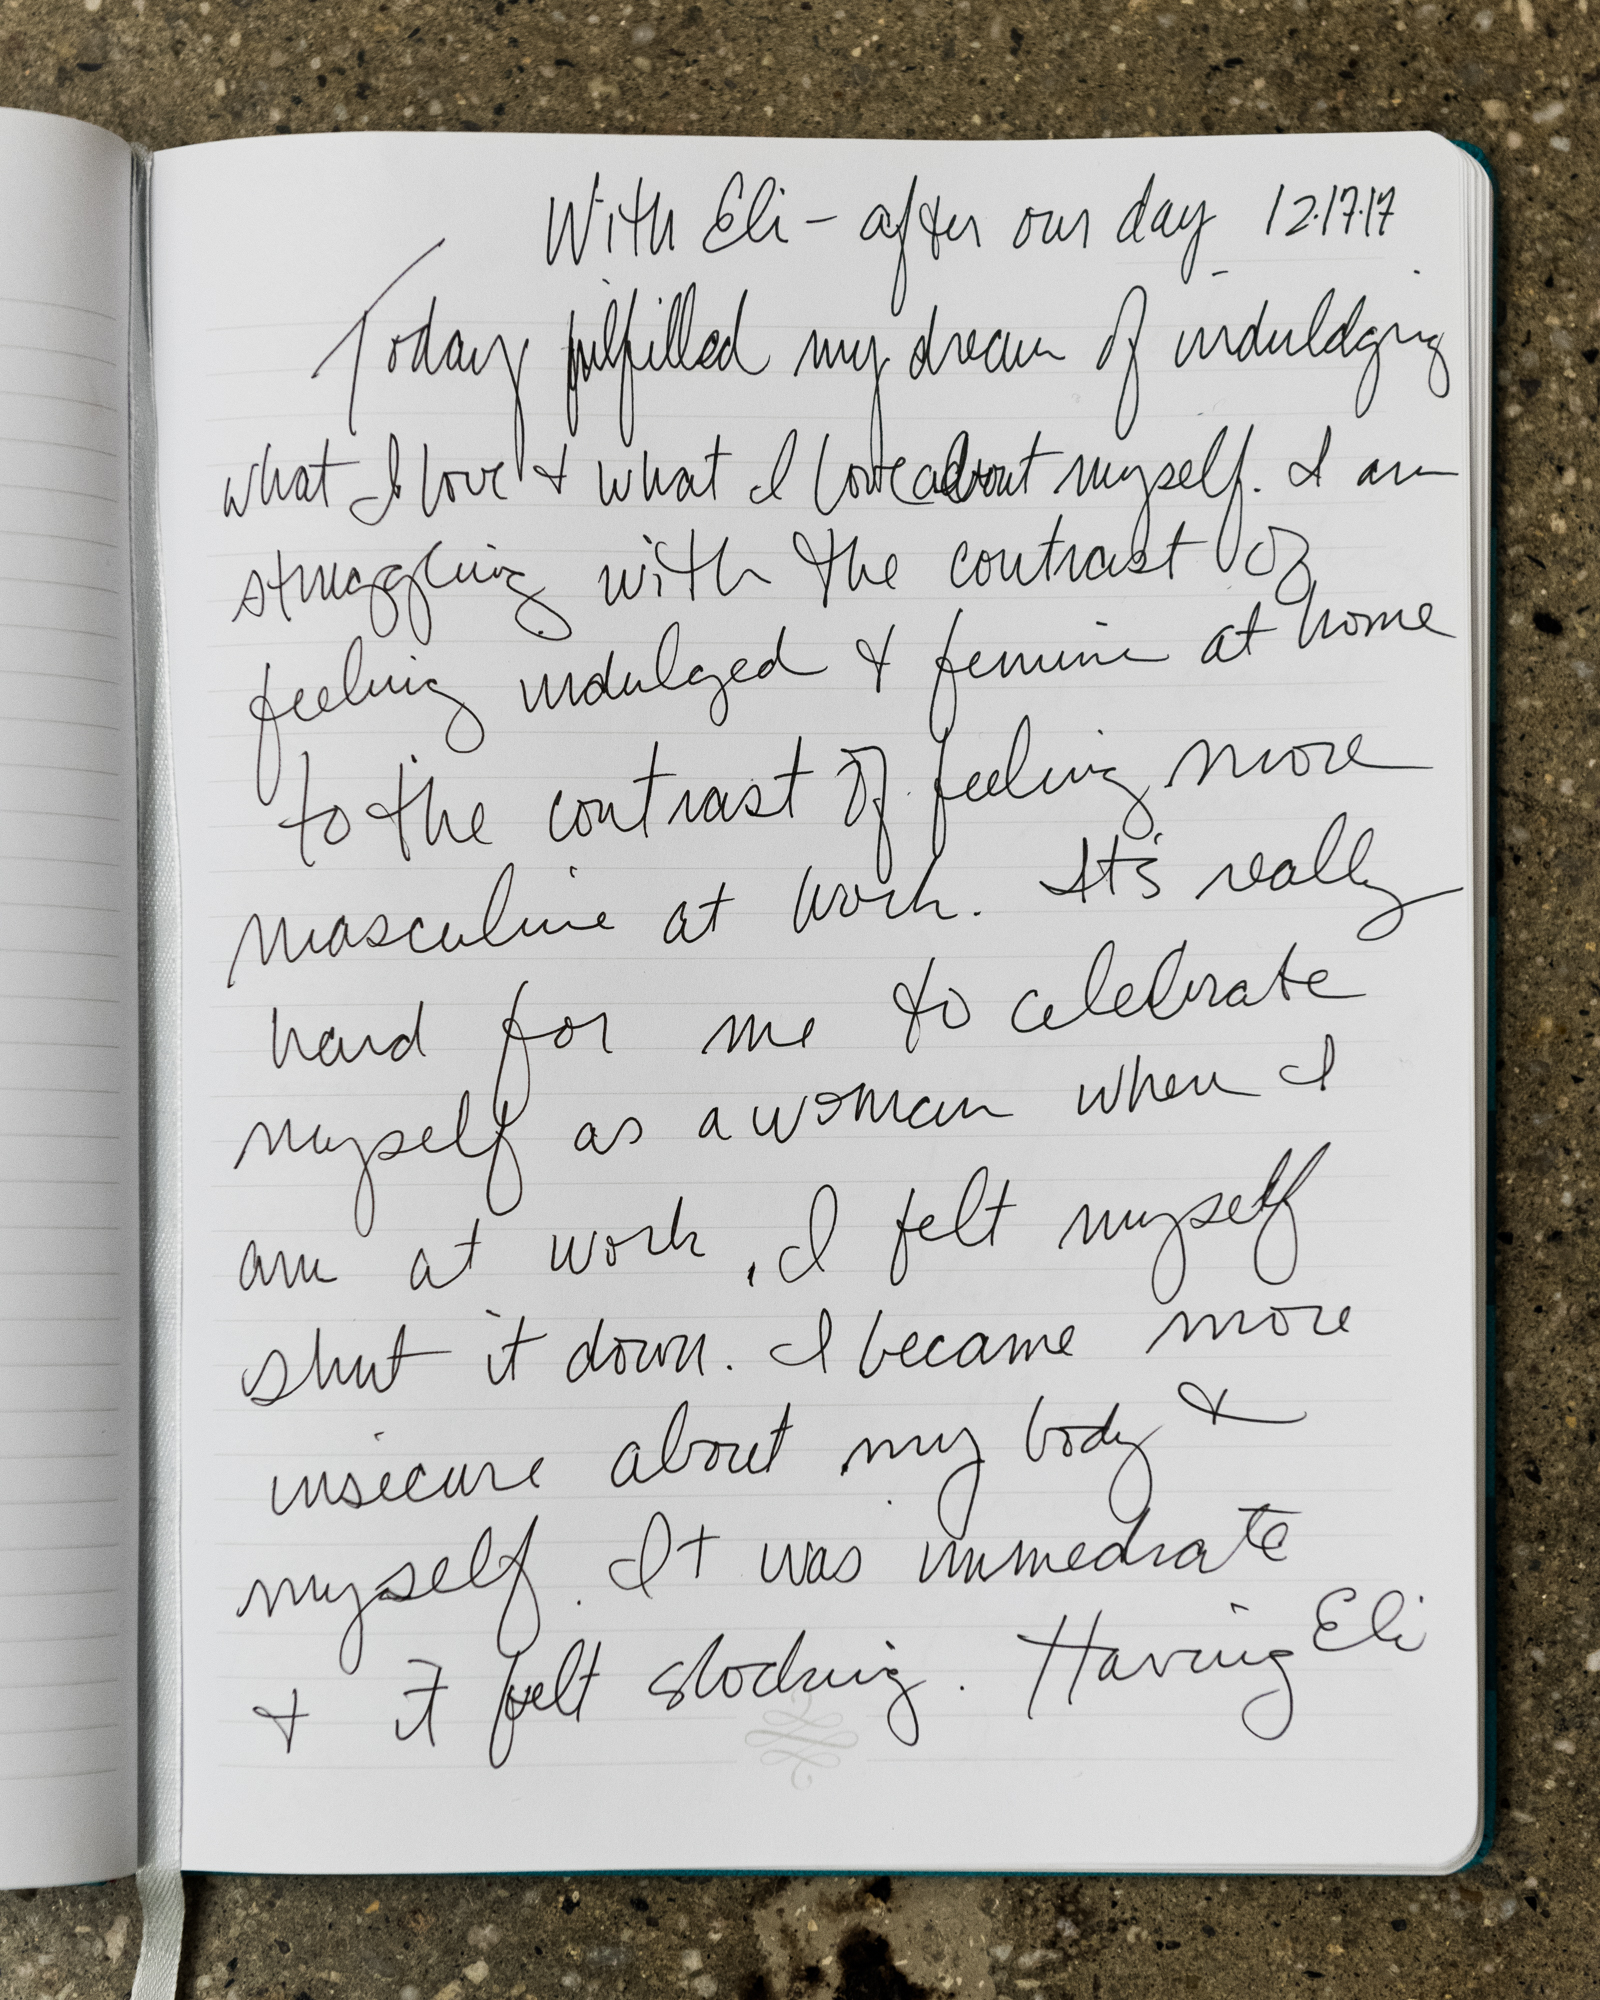 With Eli - after our day 12.17.17
Today fulfilled my dream of induldging
what I love & what I love about myself. I am
struggling with the contrast of
feeling indulged & feminine at home
to the contrast of feeling more
masculine at work. It's really
hard for me to celebrate
myself as a woman when I
am at work, I felt myself
shut it down. I became more
insecure about my body &
myself. It was immediate
& it felt shocking. Having Eli